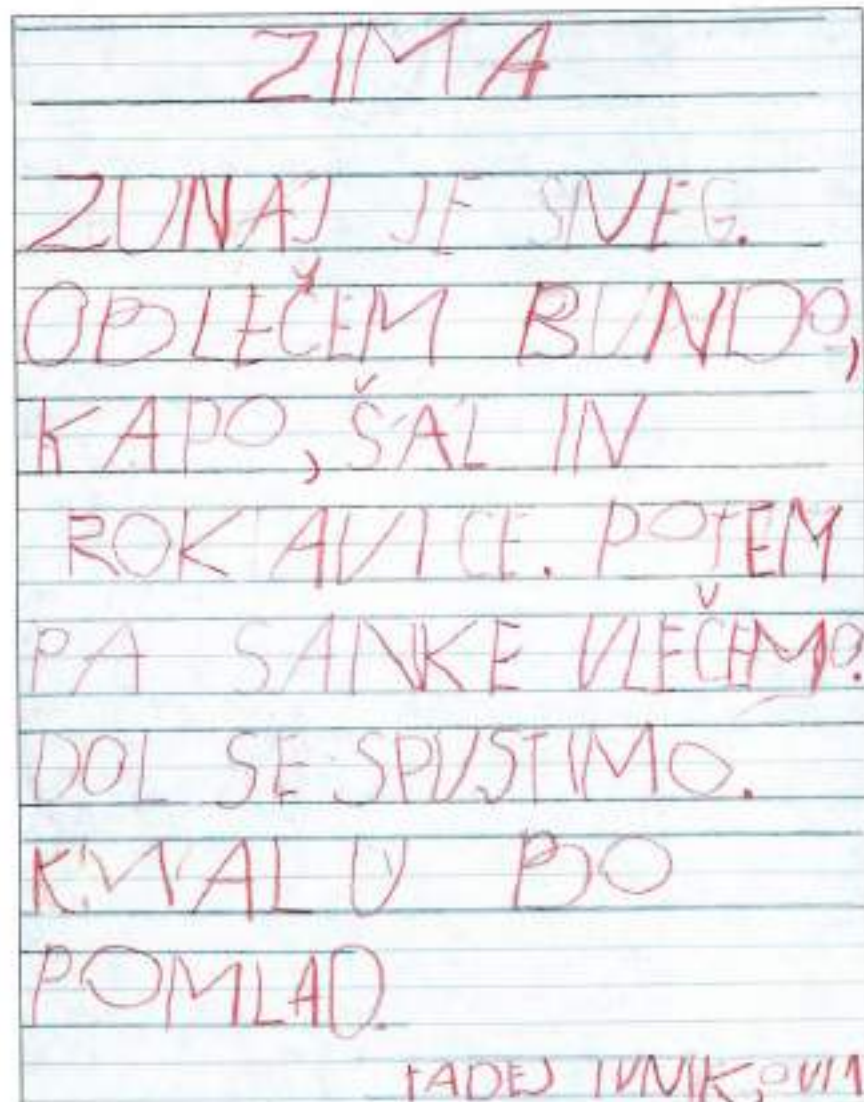 ZIMA
ZUNAJ JE SNEG.
OBLEČEM BUNDO,
KAPO, ŠAL IN
ROKAVICE. POTEM
PA SANKE VLEČEMO.
DOL SE SPUSTIMO.
KMALU BO
POMLAD.
TADEJ